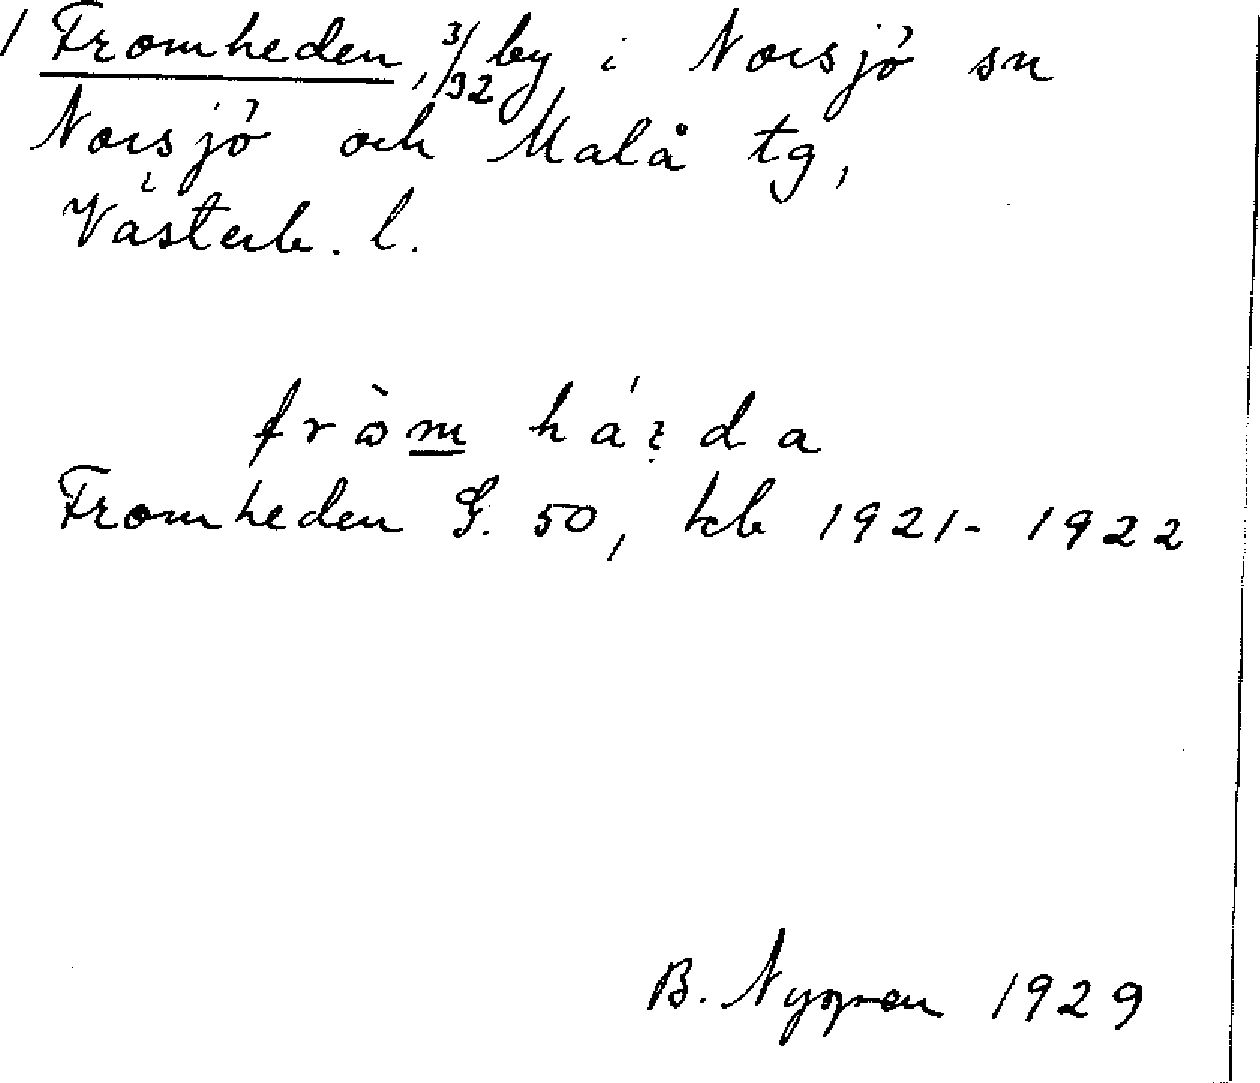 / Fromheden, 3/32 by i Norsjö sn
Norsjö och Malå tg,
Västerb. l.
Fromheden S. 50, tkb 1921-1922
B. Nygren 1929